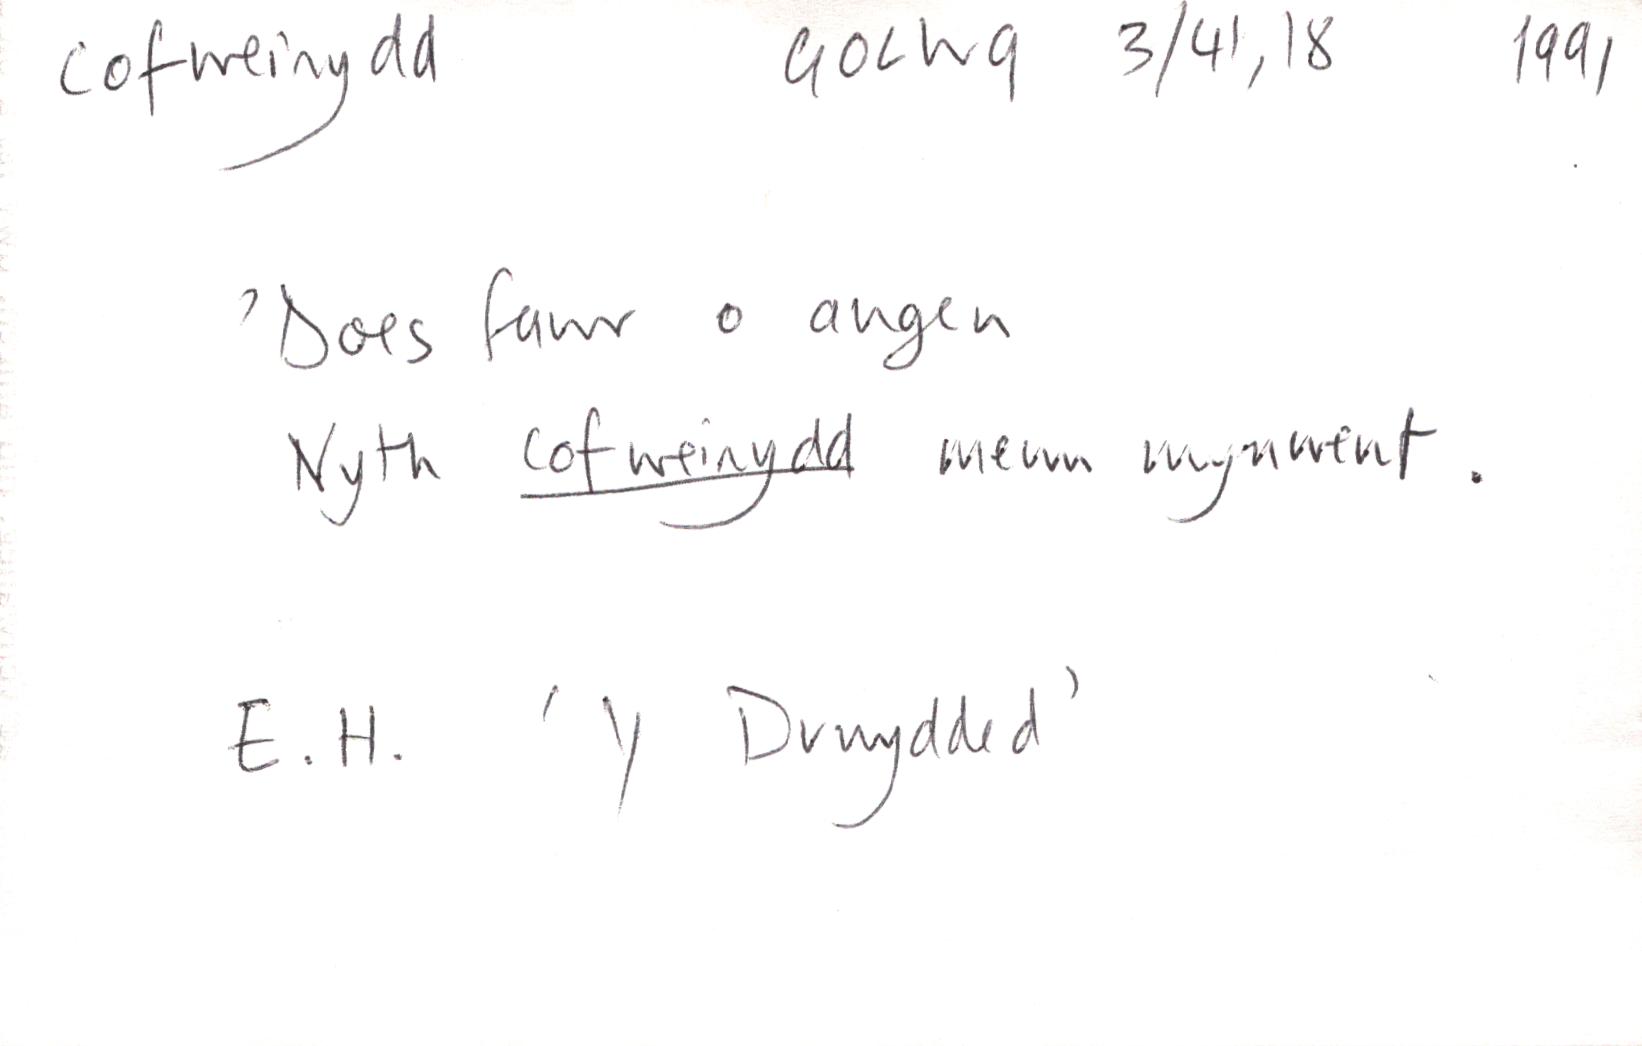 cofweinydd GOLWG 3/41, 18 1991
'Does fawr o angen
Nyth cofweinydd mewn mynwent.
E.H. 'Y Drwydded'